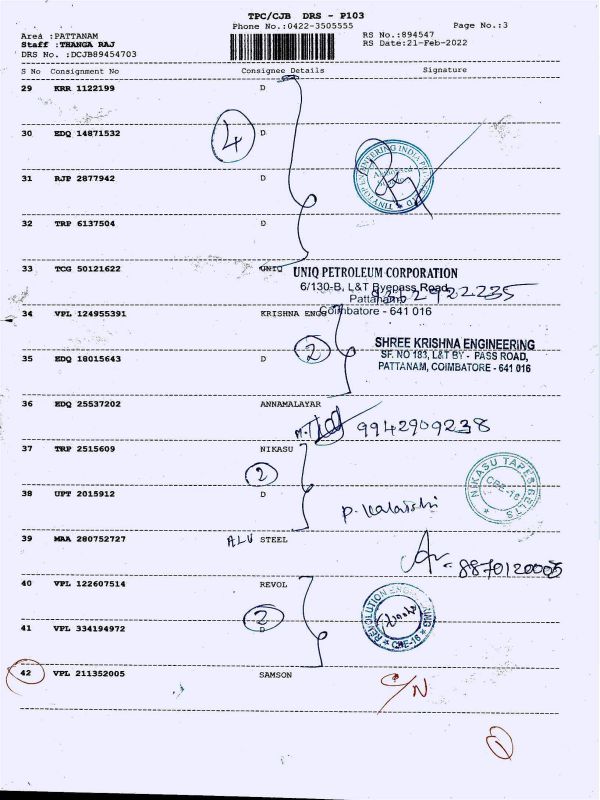 TPC/CJB DRS - P103
Phone No.:0422-3505555
Page No.:3
Area :PATTANAM
RS No.:894547
Staff :THANGA RAJ
RS Date:21-Feb-2022
DRS No. :DCJB89454703
S No Consignment No Consignee Details Signature
29 KRR 1122199 D
30 EDQ 14871532 D
4
TINYTOP ENGINEERING INDIA PRIVATE LTD
31 RJP 2877942 D
32 TRP 6137504 D
33 TCG 50121622 UNIQ
UNIQ PETROLEUM CORPORATION
6/130-B, L&T Byepass Road,
Pattanam
Coimbatore - 641 016
34 VPL 124955391 KRISHNA ENGG
SHREE KRISHNA ENGINEERING
SF. NO 183, L&T BY - PASS ROAD,
PATTANAM, COIMBATORE - 641 016
35 EDQ 18015643 D
2
36 EDQ 25537202 ANNAMALAYAR
9942909238
37 TRP 2515609 NIKASU
2
NIKASU TAPES BELTS
CBE-16
38 UPT 2015912 D
39 MAA 280752727 ALU STEEL
8870120005
40 VPL 122607514 REVOL
REVOLUTION ENGINEERING
CBE-16
2
41 VPL 334194972 D
42 VPL 211352005 SAMSON
C/N
1